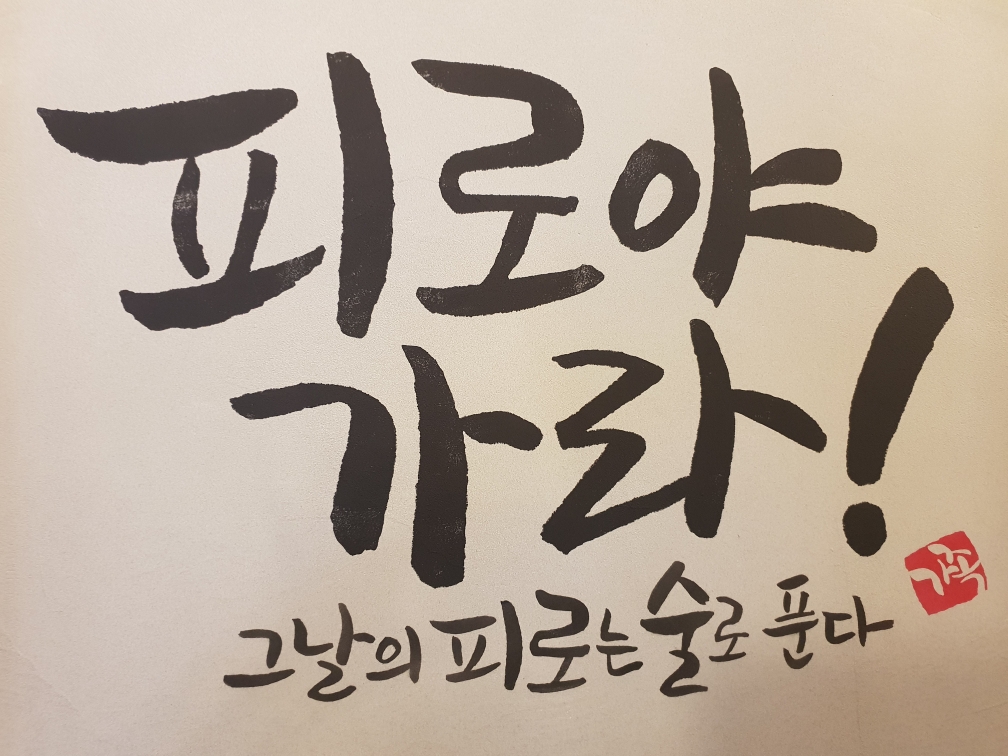 피로야
가라!
그날의 피로는 술로 푼다